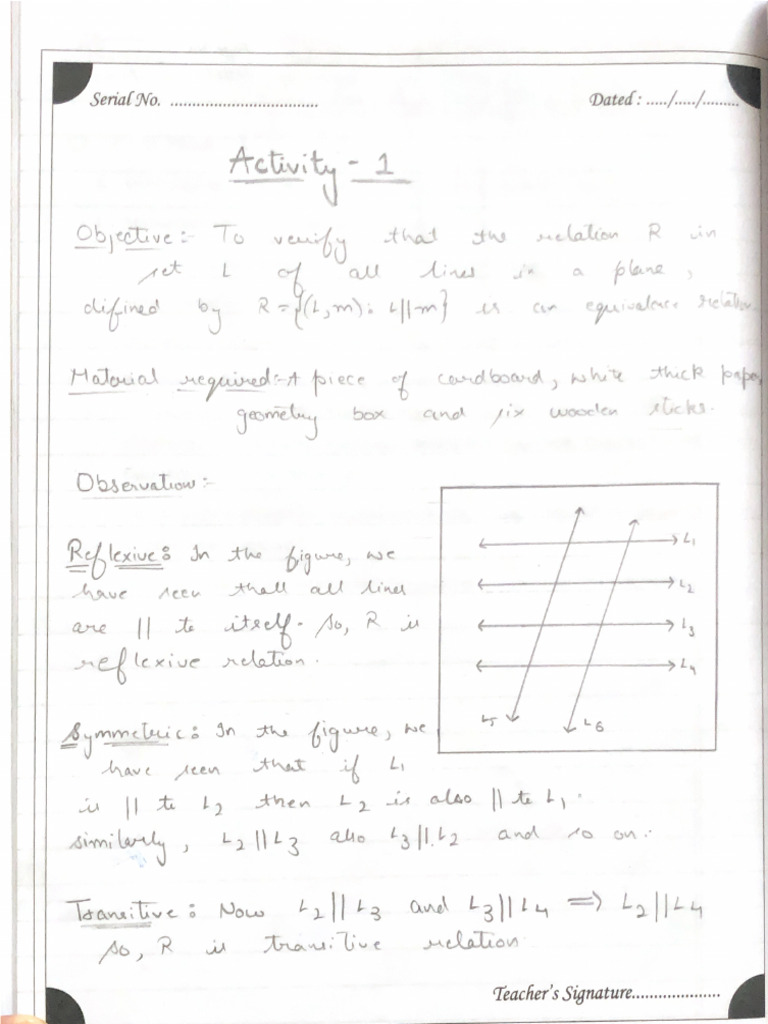 Serial No. ................................
Dated : ...../...../.........
Activity - 1
Objective:- To verify that the relation R in
set L of all lines in a plane,
difined by R = {(L,m): L||m} is an equivalence relation.
Material required:- A piece of cardboard, white thick paper,
geometry box and six wooden sticks.
Observation:-
Reflexive: In the figure, we
have seen thall all lines
are || to itself. So, R is
reflexive relation.
L1
L2
L3
L4
L5
L6
Symmetric: In the figure, we
have seen that if L1
is || to L2 then L2 is also || to L1.
similarly, L2||L3 also L3||L2 and so on.
Transitive: Now L2||L3 and L3||L4 => L2||L4
so, R is transitive relation
Teacher's Signature.....................